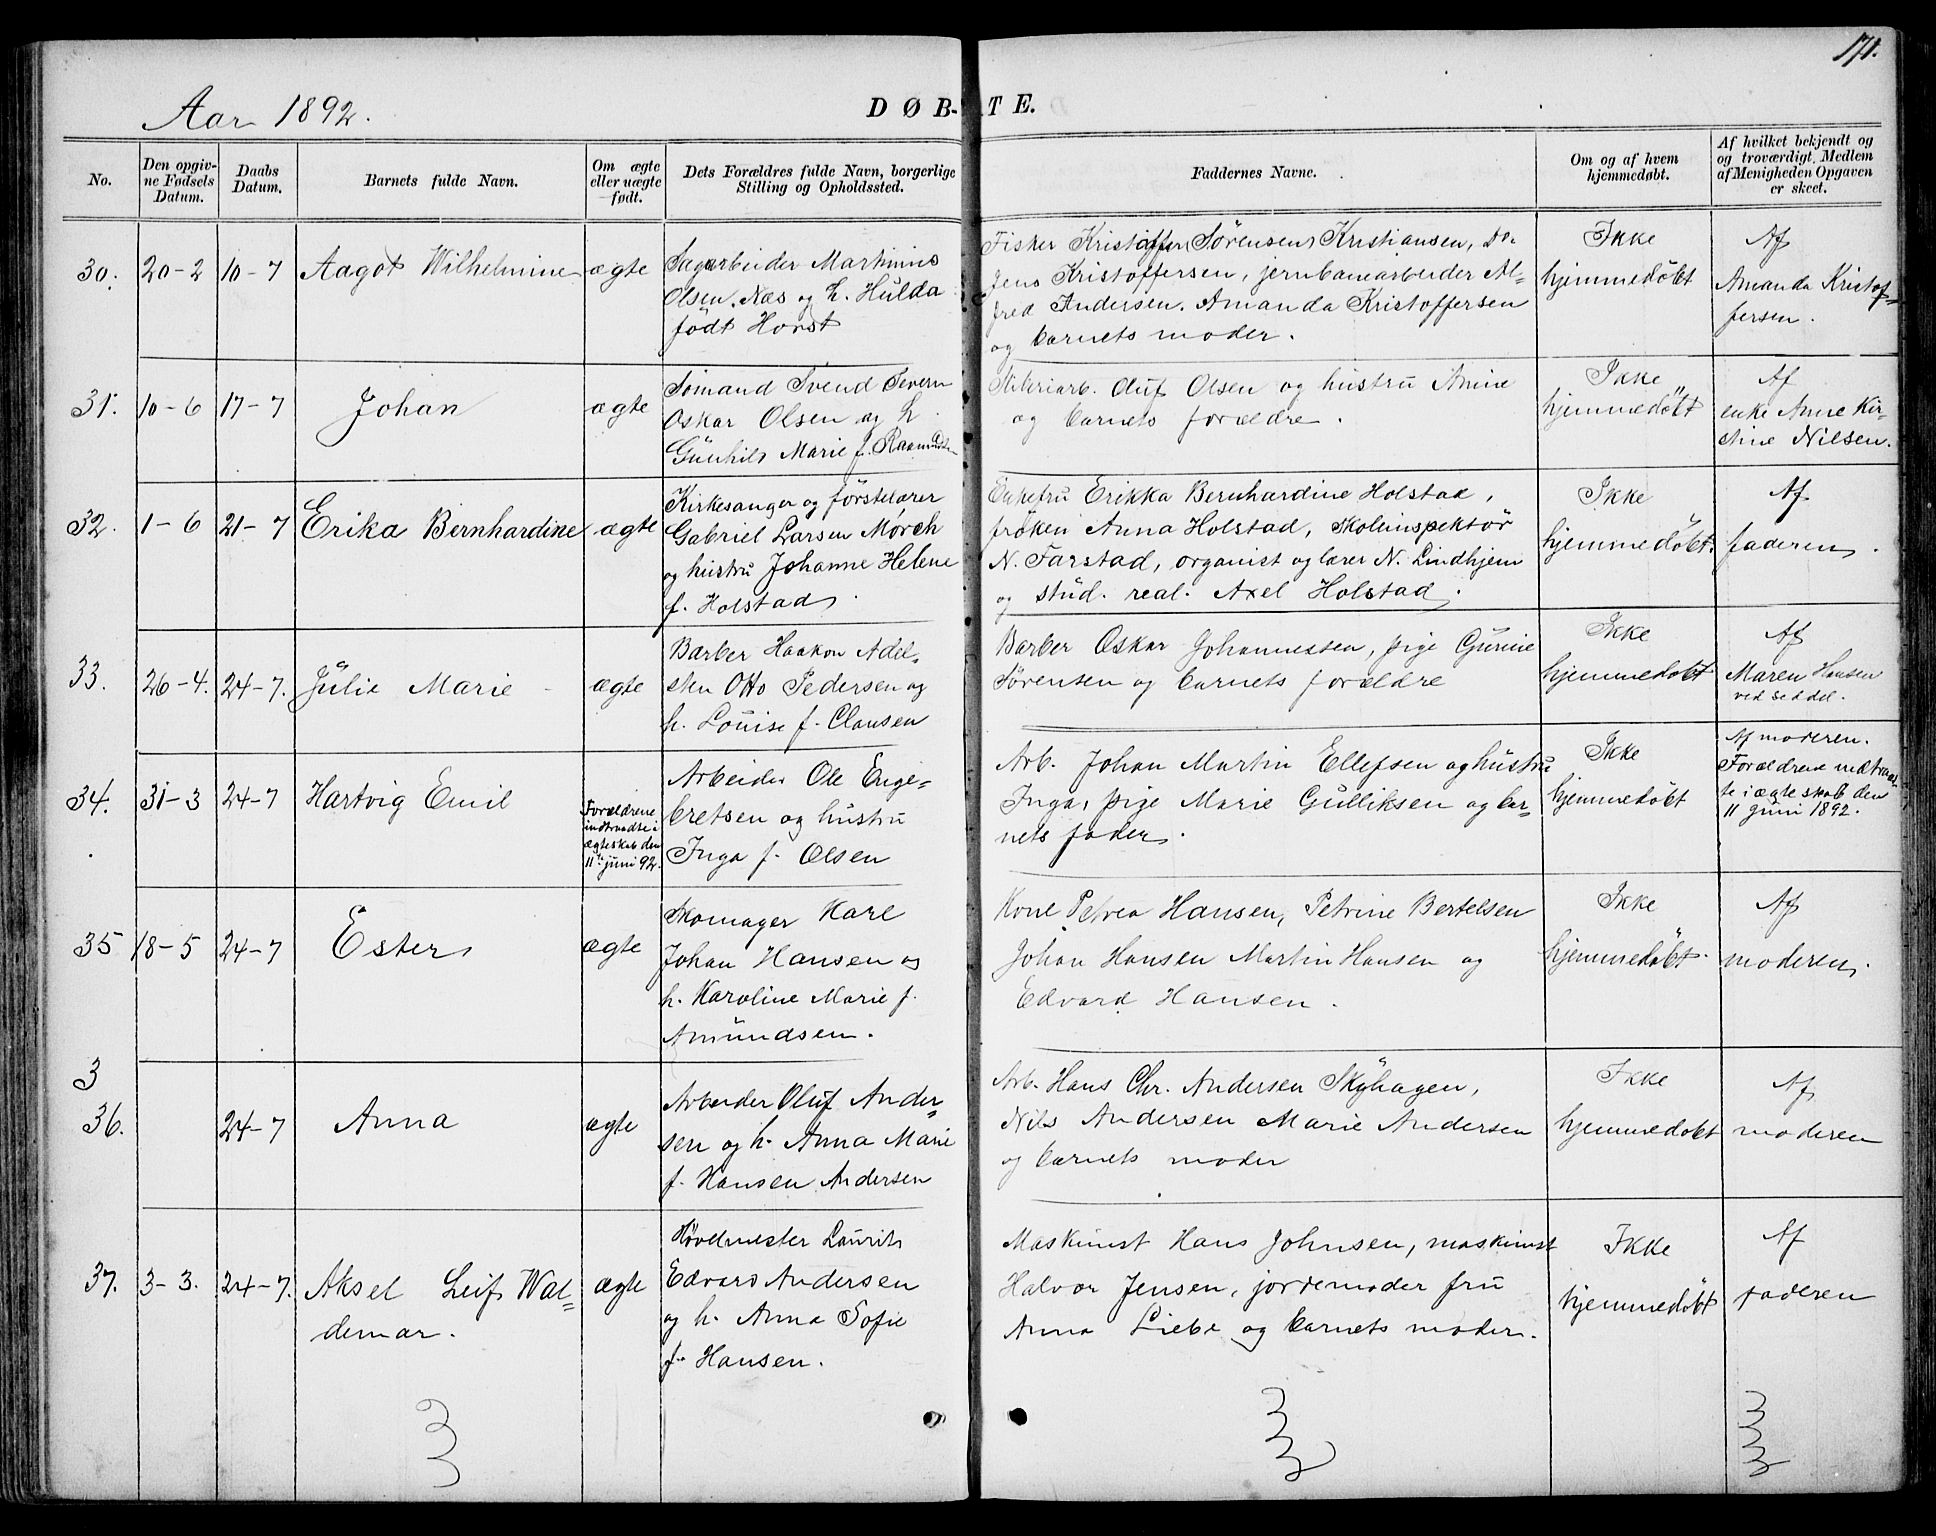 171.
Aar 1892.
DØBTE.
No.
Den opgivne Fødsels Datum.
Daabs Datum.
Barnets fulde Navn.
Om ægte eller uægte født.
Dets Forældres fulde Navn, borgerlige Stilling og Opholdssted.
Faddernes Navne.
Om og af hvem hjemmedøbt.
Af hvilket bekjendt og og troværdigt Medlem af Menigheden Opgaven er skeet.
30. 20-2 10-7 Aagot Wilhelmine ægte
Sagarbeider Martinius
Olsen, Næs og h. Hulda
født Horst
Fisker Kristoffer Sørensen Kristiansen, do.
Jens Kristoffersen, jernbanearbeider Al-
fred Andersen. Amanda Kristoffersen
og barnets moder.
Ikke
hjemmedøbt
Af
Amanda Kristof-
fersen.
31. 10-6 17-7 Johan ægte
Sømand Svend Severin
Oskar Olsen og h.
Gunhild Marie f. Rasmussen
Oluf Olsen og hustru Amine
og barnets forældre.
Ikke
hjemmedøbt
Af
enke Anne Kir-
stine Nilsen.
32. 1-6 21-7 Erika Bernhardine ægte
Kirkesanger og førstelærer
Gabriel Larsen Mørch
og hustru Johanne Helene
f. Holstad.
Enkefru Erikka Bernhardine Holstad,
frøken Anna Holstad, skoleinspektør
N. Farstad, organist og lærer N. Lindhjem
og stud. real. Axel Holstad.
Ikke
hjemmedøbt.
Af
faderen.
33. 26-4. 24-7. Julie Marie ægte
Barber Haakon Adel-
sten Otto Pedersen og
h. Louise f. Clausen
Barber Oskar Johannessen, pige Gurine
Sørensen og barnets forældre
Ikke
hjemmedøbt
Af
Maren Hansen
ved seddel.
34. 31-3 24-7 Hartvig Emil
Forældrene
indtraadte i
ægteskab den
11te juni 92.
Arbeider Ole Enge-
bretsen og hustru
Inga f. Olsen
Arb. Johan Martin Ellefsen og hustru
Inga, pige Marie Gulliksen og bar-
nets fader.
Ikke
hjemmedøbt
Af moderen.
Forældrene indtraad-
te i ægteskab den
11 juni 1892.
35 18-5 24-7 Ester ægte
Skomager Karl
Johan Hansen og
h. Karoline Marie f.
Amundsen.
Kone Petrea Hansen, Petrine Bertelsen
Johan Hansen Martin Hansen og
Edvard Hansen.
Ikke
hjemmedøbt.
Af
moderen.
3
36. 24-7 Anna ægte
Arbeider Oluf Ander-
sen og h. Anna Marie
f. Hansen Andersen
Arb. Hans Chr. Andersen Skyhagen,
Nils Andersen Marie Andersen
og barnets moder
Ikke
hjemmedøbt
Af
moderen
37. 3-3. 24-7. Aksel Leif Wal-
demar. ægte
Hovedmester Laurits
Edvard Andersen
og h. Anna Sofie
f. Hansen.
Maskinist Hans Johnsen, maskinist
Halvor Jensen, jordemoder fru
Anna Liebe og barnets moder.
Ikke
hjemmedøbt
Af
faderen